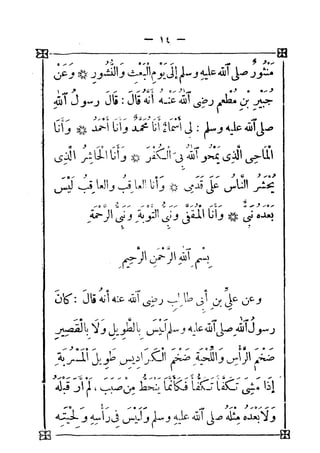 — ١٤ —
مَنْثُورٌ صلى ٱلله عليه وسلم إِلَى يَوْمِ ٱلْبَعْثِ وَٱلنُّشُورِ * وَعَنْ
جُبَيْرِ بْنِ مُطْعِمٍ رَضِىَ ٱللهُ عَنْهُ أَنَّهُ قَالَ : قَالَ رَسُولُ ٱللهِ
صلى ٱلله عليه وسلم : لِى أَسْمَاءٌ أَنَا مُحَمَّدٌ وَأَنَا أَحْمَدُ * وَأَنَا
ٱلْمَاحِى ٱلَّذِى يَمْحُو ٱللهُ بِىَ ٱلْكُفْرَ * وَأَنَا ٱلْحَاشِرُ ٱلَّذِى
يُحْشَرُ ٱلنَّاسُ عَلَى قَدَمِى * وَأَنَا ٱلْعَاقِبُ وَٱلْعَاقِبُ لَيْسَ
بَعْدَهُ نَبِىٌّ * وَأَنَا ٱلْمُقَفِّى وَنَبِىُّ ٱلتَّوْبَةِ وَنَبِىُّ ٱلرَّحْمَةِ
بِسْمِ ٱللهِ ٱلرَّحْمٰنِ ٱلرَّحِيمِ
وعن عَلِىِّ بنِ أَبِى طَالِبٍ رَضِىَ ٱللهُ عنه أَنَّهُ قَالَ : كَانَ
رسولُ ٱللهِ صلى ٱلله عليه وسلم لَيْسَ بِٱلطَّوِيلِ وَلَا بِٱلْقَصِيرِ
ضَخْمَ ٱلرَّأْسِ وَٱللِّحْيَةِ ضَخْمَ ٱلْكَرَادِيسِ طَوِيلَ ٱلْمَسْرُبَةِ
إِذَا مَشَى تَكَفَّأَ تَكَفُّأً فَكَأَنَّمَا يَنْحَطُّ مِنْ صَبَبٍ ، لَمْ أَرَ قَبْلَهُ
وَلَا بَعْدَهُ مِثْلَهُ صلى ٱلله عليه وسلم وَلَيْسَ فِى رَأْسِهِ وَلِحْيَتِهِ